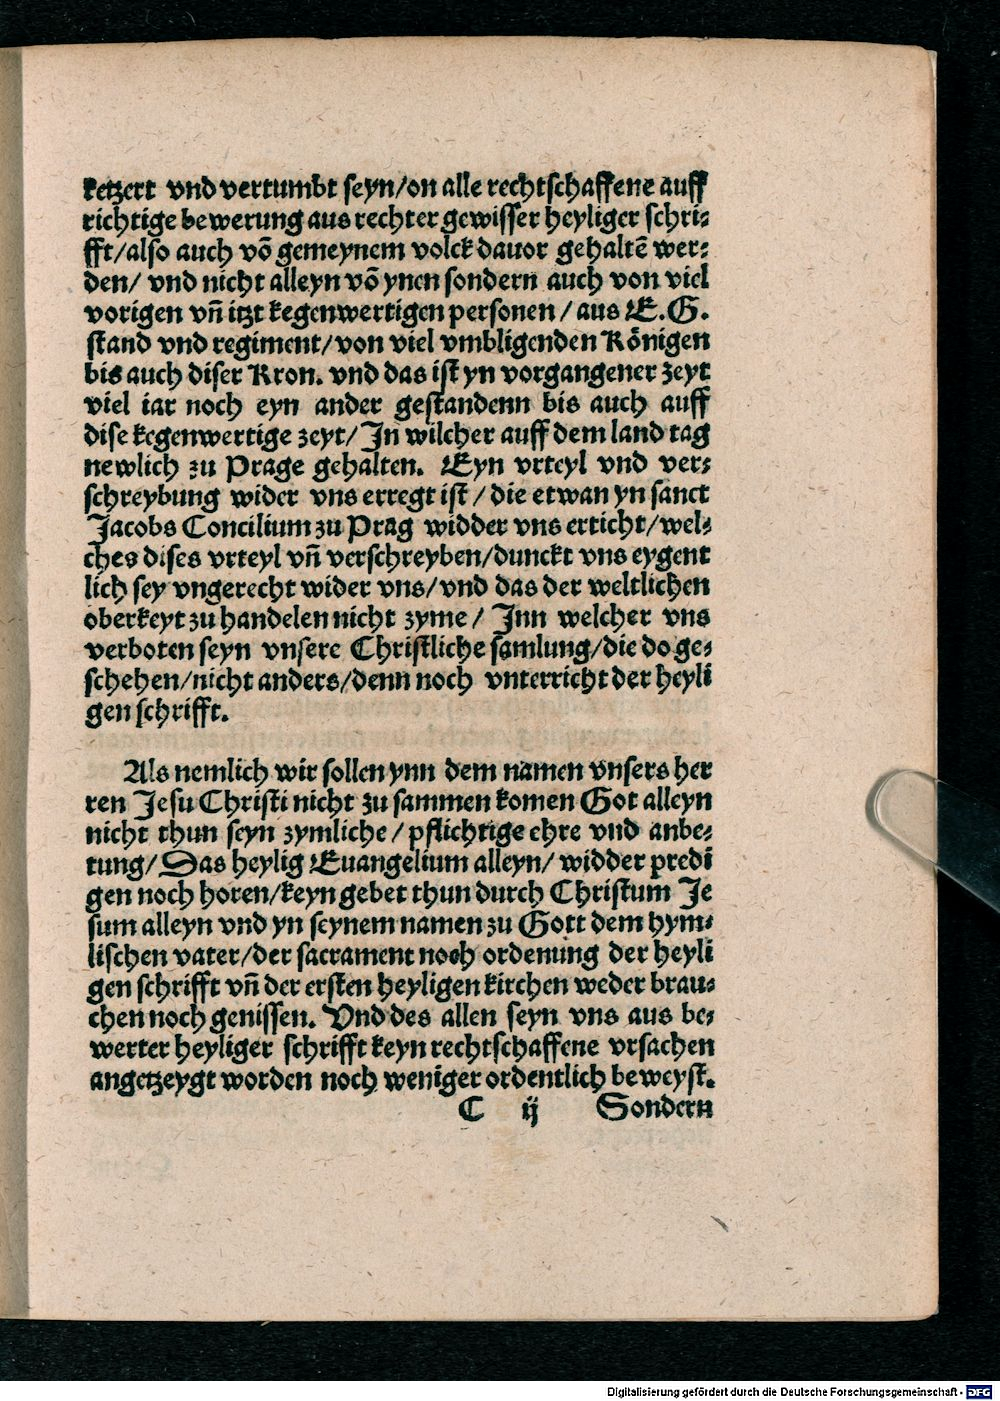 ketzert vnd vertumbt seyn/on alle rechtschaffene auff
richtige bewerung aus rechter gewisser heyliger schri⸗
fft/also auch võ gemeynem volck dauor gehaltẽ wer⸗
den/ vnd nicht alleyn võ ynen sondern auch von viel
vorigen vñ itzt kegenwertigen personen / aus E.G.
stand vnd regiment/von viel vmbligenden Königen
bis auch diser Kron. vnd das ist yn vorgangener zeyt
viel iar noch eyn ander gestandenn bis auch auff
dise kegenwertige zeyt/ In wilcher auff dem land tag
newlich zu Prage gehalten. Eyn vrteyl vnd ver⸗
schreybung wider vns erregt ist / die etwan yn sanct
Jacobs Concilium zu Prag widder vns erticht/wel⸗
ches dises vrteyl vñ verschreyben/dunckt vns eygent
lich sey vngerecht wider vns/vnd das der weltlichen
oberkeyt zu handelen nicht zyme / Inn welcher vns
verboten seyn vnsere Christliche samlung/die do ge⸗
schehen/nicht anders/denn noch vnterricht der heyli
gen schrifft.
Als nemlich wir sollen ynn dem namen vnsers her
ren Jesu Christi nicht zu sammen komen Got alleyn
nicht thun seyn zymliche / pflichtige ehre vnd anbe⸗
tung/ Das heylig Euangelium alleyn/ widder predi
gen noch horen/keyn gebet thun durch Christum Je
sum alleyn vnd yn seynem namen zu Gott dem hym⸗
lischen vater/der sacrament noch ordenung der heyli
gen schrifft vñ der ersten heyligen kirchen weder brau⸗
chen noch genissen. Vnd des allen seyn vns aus be⸗
werter heyliger schrifft keyn rechtschaffene vrsachen
angetzeygt worden noch weniger ordentlich beweyst.
C ij Sondern
Digitalisierung gefördert durch die Deutsche Forschungsgemeinschaft - DFG